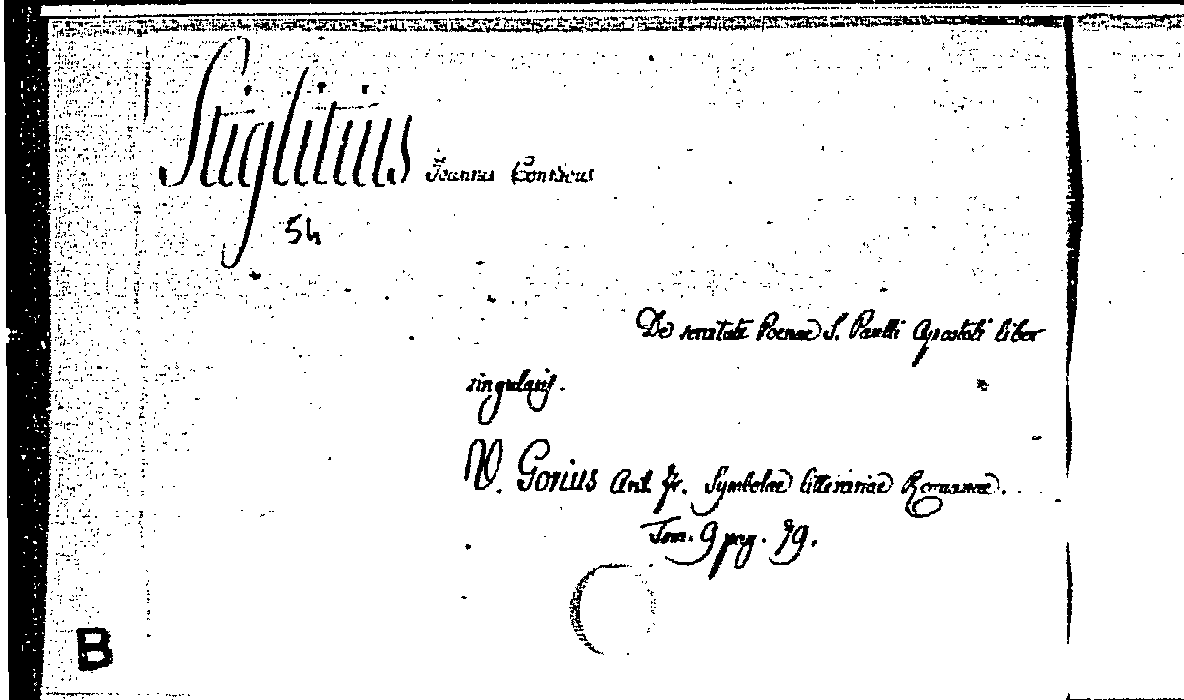 Stiglitius Joannes
54
De Poenae S. Paulli Apostoli liber
singularis.
V. Gorius Ant. Fr. Symbolae litterariae Romanae.
Tom. 9 pag. 79.
B